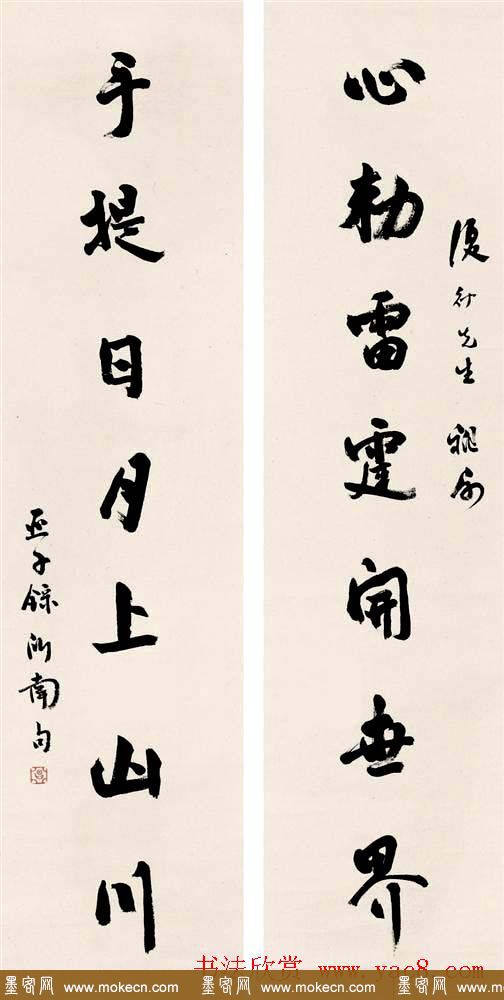 復 先生雅
心勅雷霆開世界
手提日月上山川
亞子錄所南句
书法欣赏 www.yac8.com
墨客网 www.mokecn.com 墨客网 www.mokecn.com 墨客网 www.mokecn.com 墨客网